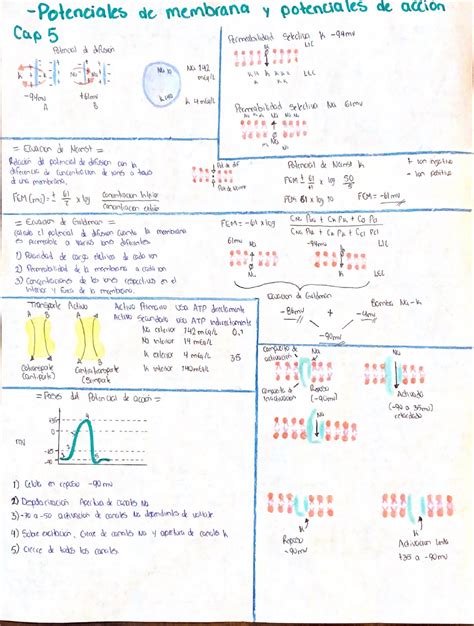 -Potenciales de membrana y potenciales de acción
Cap 5
Potencial de difusión
-94mv
+61mv
A
B
Na 142
mEq/L
K 4 mEq/L
Permeabilidad Selectiva K -94mv
LEC
LIC
Permeabilidad Selectiva Na 61mv
= Ecuacion de Nernst =
Relación de potencial de difusión con la
diferencia de concentracion de iones a traves
de una membrana.
FEM (mv) = ± 61 x log
concentracion interior
Potencial de Nernst K
+ ion negativo
- ion positivo
FEM ± 61 x log 50
5
FEM 61 x log 10
FEM = -61mv
= Ecuacion de Goldman =
calcula el potencial de difusion cuando la membrana
es permeable a varios iones diferentes
1) Polaridad de carga electrica de cada ion
2) Permeabilidad de la membrana a cada ion
3) Concentraciones de los iones respectivos en el
interior y fuera de la membrana.
FEM = -61 x log
61mv
Na
-94mv
K
LEC
LIC
Ecuacion de Goldman
Bomba Na-K
-86mv
+
-4mv
-90mv
Transporte Activo
A B
A B
Activo Primario Uso ATP directamente
Activo Secundario Uso ATP indirectamente
Na exterior 142 mEq/L
0.1
Na interior 14 mEq/L
K exterior 4 mEq/L
35
K interior 140mEq/L
= Fases del Potencial de acción =
mV
+35
0
-90
1) Celula en reposo -90mv
2) Despolarización Apertura de canales Na
3) -70 a -50 activacion de canales Na dependientes de voltaje
4) Sobre excitación, Cierre de canales Na y apertura de canales K
5) Cierre de todos los canales
compuerta de
activacion
Na
compuerta de
inactivacion
Reposo
(-90mv)
Activado
(-90 a 35mv)
Na
K
Reposo
-90mv
K
Activacion lenta
+35 a -90mv